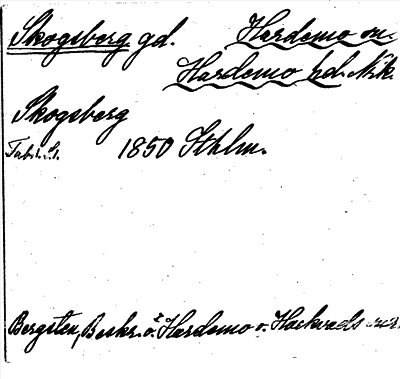 Skogsberg gd. Hardemo sn.
Hardemo hd. Nrk.
Skogsberg
1850 Sthlm.
Bergsten, Beskr. ö. Hardemo o. Hackvads snr.